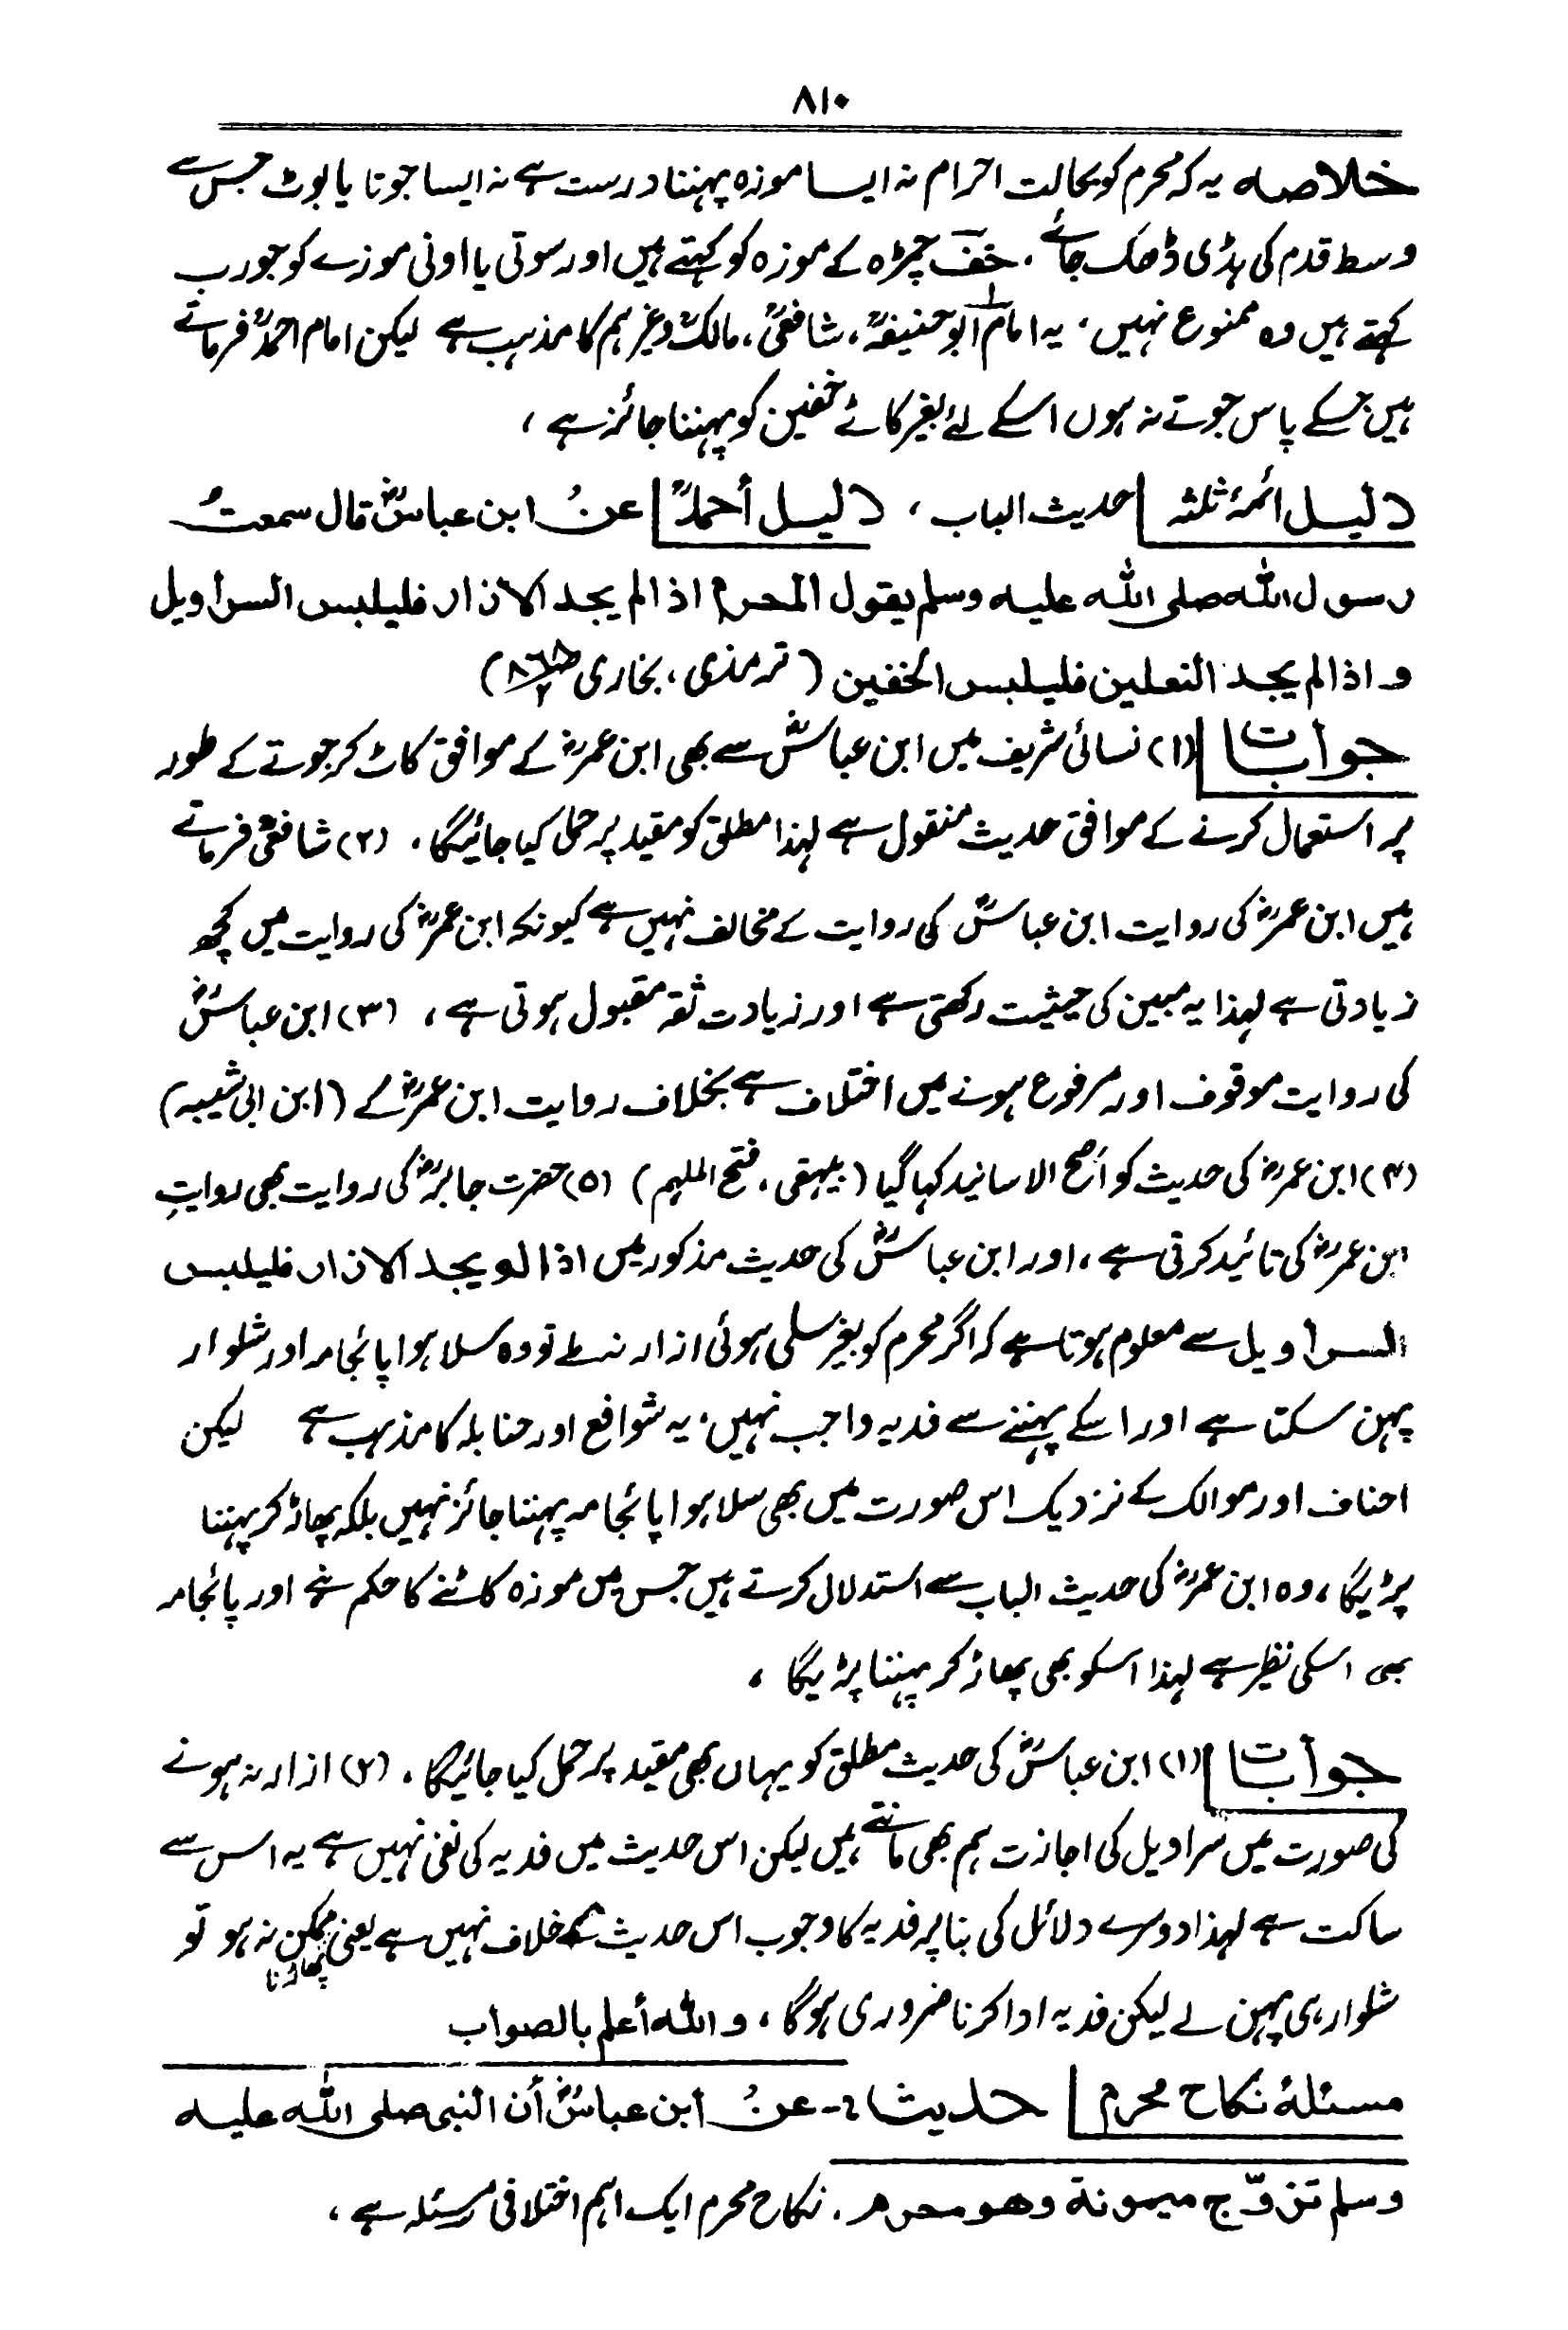 ۸۱۰
خلاصہ یہ کہ محرم کو بحالت احرام نہ ایسا موزہ پہننا درست ہے نہ ایسا جوتا یا بوٹ جس سے
وسط قدم کی ہڈی ڈھک جائے ، خف چمڑہ کے موزہ کو کہتے ہیں اور سوتی یا اونی موزے کو جورب
کہتے ہیں وہ ممنوع نہیں ، یہ امام ابو حنیفہؒ ، شافعیؒ ، مالکؒ وغیرہم کا مذہب ہے لیکن امام احمدؒ فرماتے
ہیں جسکے پاس جوتے نہ ہوں اسکے لئے بغیر کاٹے خفین کو پہننا جائز ہے ،
دلیل ائمۂ ثلثہ حدیث الباب ، دلیل أحمدؒ عن ابن عباسؓ قال سمعتُ
رسول اللہ صلی اللہ علیہ وسلم یقول المحرم اذا لم یجد الازار فلیلبس السراویل
و اذا لم یجد النعلین فلیلبس الخفین ( ترمذی ، بخاری )
جوابات (۱) نسائی شریف میں ابن عباسؓ سے بھی ابن عمرؓ کے موافق کاٹ کر جوتے کے طور
پر استعمال کرنے کے موافق حدیث منقول ہے لہذا مطلق کو مقید پر حمل کیا جائیگا ، (۲) شافعیؒ فرماتے
ہیں ابن عمرؓ کی روایت ابن عباسؓ کی روایت کے مخالف نہیں ہے کیونکہ ابن عمرؓ کی روایت میں کچھ
زیادتی ہے لہذا یہ مبین کی حیثیت رکھتی ہے اور زیادت ثقہ مقبول ہوتی ہے ، (۳) ابن عباسؓ
کی روایت موقوف اور مرفوع ہونے میں اختلاف ہے بخلاف روایت ابن عمرؓ کے (ابن ابی شیبہ)
(۴) ابن عمرؓ کی حدیث کو أصح الاسانید کہا گیا (بیہقی ، فتح الملہم) (۵) حضرت جابرؓ کی روایت بھی روایتِ
ابن عمرؓ کی تائید کرتی ہے ، اور ابن عباسؓ کی حدیث مذکور میں اذا لم یجد الازار فلیلبس
السراویل سے معلوم ہوتا ہے کہ اگر محرم کو بغیر سلی ہوئی ازار نہ ملے تو وہ سلا ہوا پائجامہ اور شلوار
پہن سکتا ہے اور اسکے پہننے سے فدیہ واجب نہیں ، یہ شوافع اور حنابلہ کا مذہب ہے لیکن
احناف اور موالک کے نزدیک اس صورت میں بھی سلا ہوا پائجامہ پہننا جائز نہیں بلکہ پھاڑ کر پہننا
پڑیگا ، وہ ابن عمرؓ کی حدیث الباب سے استدلال کرتے ہیں جس میں موزہ کاٹنے کا حکم ہے اور پائجامہ
بھی اسکی نظیر ہے لہذا اسکو بھی پھاڑ کر پہننا پڑیگا ،
جوابات (۱) ابن عباسؓ کی حدیث مطلق کو یہاں بھی مقید پر حمل کیا جائیگا ، (۲) ازار نہ ہونے
کی صورت میں سراویل کی اجازت ہم بھی مانتے ہیں لیکن اس حدیث میں فدیہ کی نفی نہیں ہے یہ اس سے
ساکت ہے لہذا دوسرے دلائل کی بنا پر فدیہ کا وجوب اس حدیث کے خلاف نہیں ہے یعنی پھاڑنا ممکن نہ ہو تو
شلوار ہی پہن لے لیکن فدیہ ادا کرنا ضروری ہوگا ، واللہ أعلم بالصواب
مسئلۂ نکاح محرم حدیث :- عن ابن عباسؓ أن النبی صلی اللہ علیہ
وسلم تزوّج میمونة وهو محرم ، نکاح محرم ایک اہم اختلافی مسئلہ ہے ،